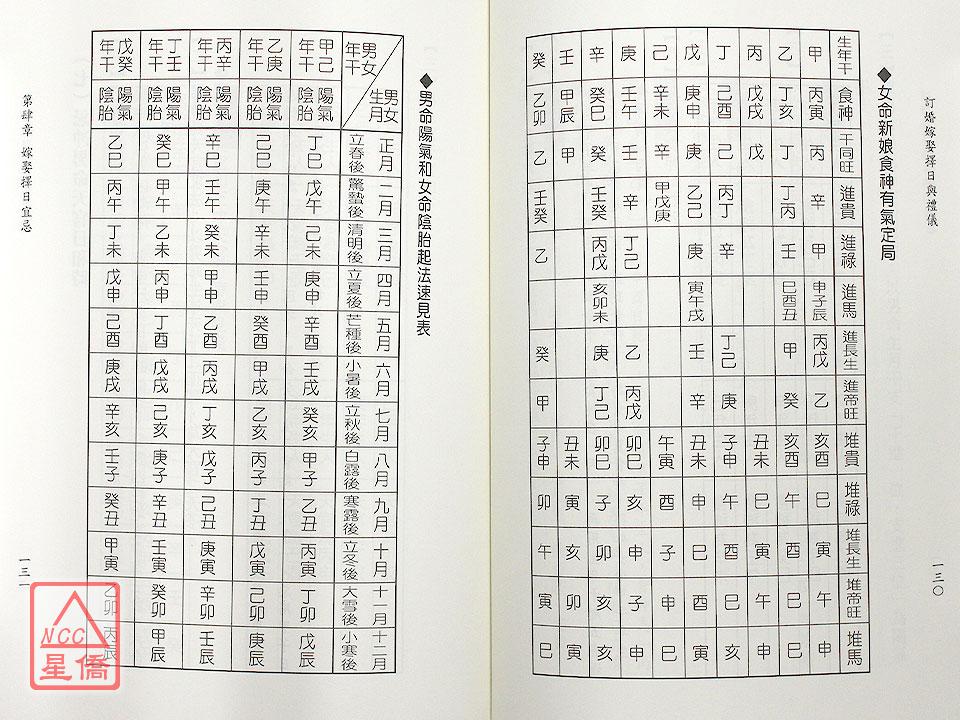 訂婚嫁娶擇日與禮儀
◆女命新娘食神有氣定局
生年干 食神 干同旺 進貴 進祿 進馬 進長生 進帝旺 堆貴 堆祿 堆長生 堆帝旺 堆馬
甲 丙寅 丙 辛 甲 申子辰 丙戊 乙 亥酉 巳 寅 午 申
乙 丁亥 丁 丁丙 壬 巳酉丑 甲 癸 亥酉 午 酉 巳 亥
丙 戊戌 戊 丑未 巳 寅 午 申
丁 己酉 己 丙丁 辛 丁己 庚 子申 午 酉 巳 亥
戊 庚申 庚 乙己 庚 寅午戌 壬 辛 丑未 申 巳 酉 寅
己 辛未 辛 甲戊庚 午寅 酉 子 申 巳
庚 壬午 壬 辛 丁己 乙 丙戊 卯巳 亥 申 子 申
辛 癸巳 癸 壬癸 丙戊 亥卯未 庚 丁己 卯巳 子 卯 亥 亥
壬 甲辰 甲 丑未 寅 亥 卯 寅
癸 乙卯 乙 壬癸 乙 癸 甲 子申 卯 午 寅 巳
一三〇
◆男命陽氣和女命陰胎起法速見表
男女年干 男女生月 正月立春後 二月驚蟄後 三月清明後 四月立夏後 五月芒種後 六月小暑後 七月立秋後 八月白露後 九月寒露後 十月立冬後 十一月大雪後 十二月小寒後
甲己年干 陽氣陰胎 丁巳 戊午 己未 庚申 辛酉 壬戌 癸亥 甲子 乙丑 丙寅 丁卯 戊辰
乙庚年干 陽氣陰胎 己巳 庚午 辛未 壬申 癸酉 甲戌 乙亥 丙子 丁丑 戊寅 己卯 庚辰
丙辛年干 陽氣陰胎 辛巳 壬午 癸未 甲申 乙酉 丙戌 丁亥 戊子 己丑 庚寅 辛卯 壬辰
丁壬年干 陽氣陰胎 癸巳 甲午 乙未 丙申 丁酉 戊戌 己亥 庚子 辛丑 壬寅 癸卯 甲辰
戊癸年干 陽氣陰胎 乙巳 丙午 丁未 戊申 己酉 庚戌 辛亥 壬子 癸丑 甲寅 乙卯 丙辰
第肆章 嫁娶擇日宜忌
一三一
NCC
星僑